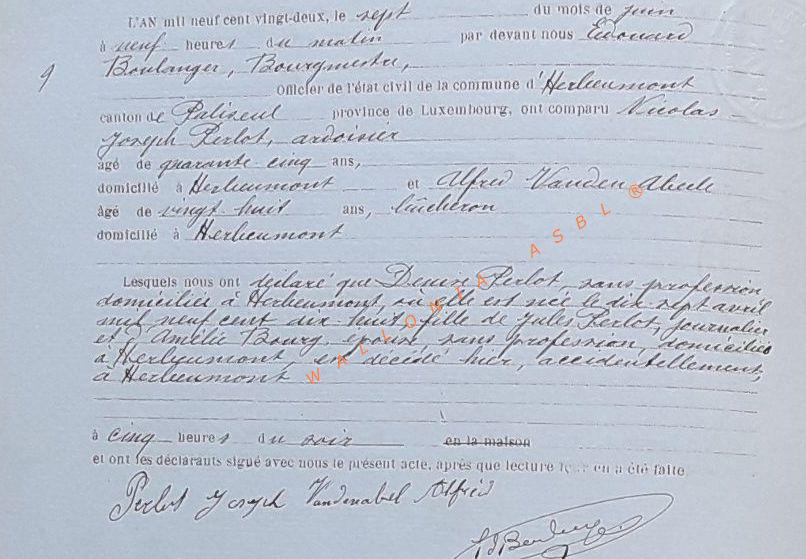 L'AN mil neuf cent vingt-deux, le sept du mois de juin
à neuf heures du matin par devant nous Edouard
9
Boulanger, Bourgmestre,
Officier de l'état civil de la commune d'Herbeumont
canton de Paliseul province de Luxembourg, ont comparu Nicolas
Joseph Perlot, ardoisier
âgé de quarante cinq ans,
domicilié à Herbeumont et Alfred Vanden Abeele
âgé de vingt huit ans, bûcheron
domicilié à Herbeumont
Lesquels nous ont déclaré que Denise Perlot, sans profession
domiciliée à Herbeumont, où elle est née le dix-sept avril
mil neuf cent dix huit, fille de Jules Perlot, journalier
et Amélie Bourg, épouse, sans profession, domiciliés
à Herbeumont, est décédé hier, accidentellement,
à Herbeumont
WALLONIA ASBL ®
à cinq heures du soir en la maison
et ont les déclarants signé avec nous le présent acte, après que lecture en a été faite.
Perlot Joseph Vandenabel Alfred
Ed Boulanger